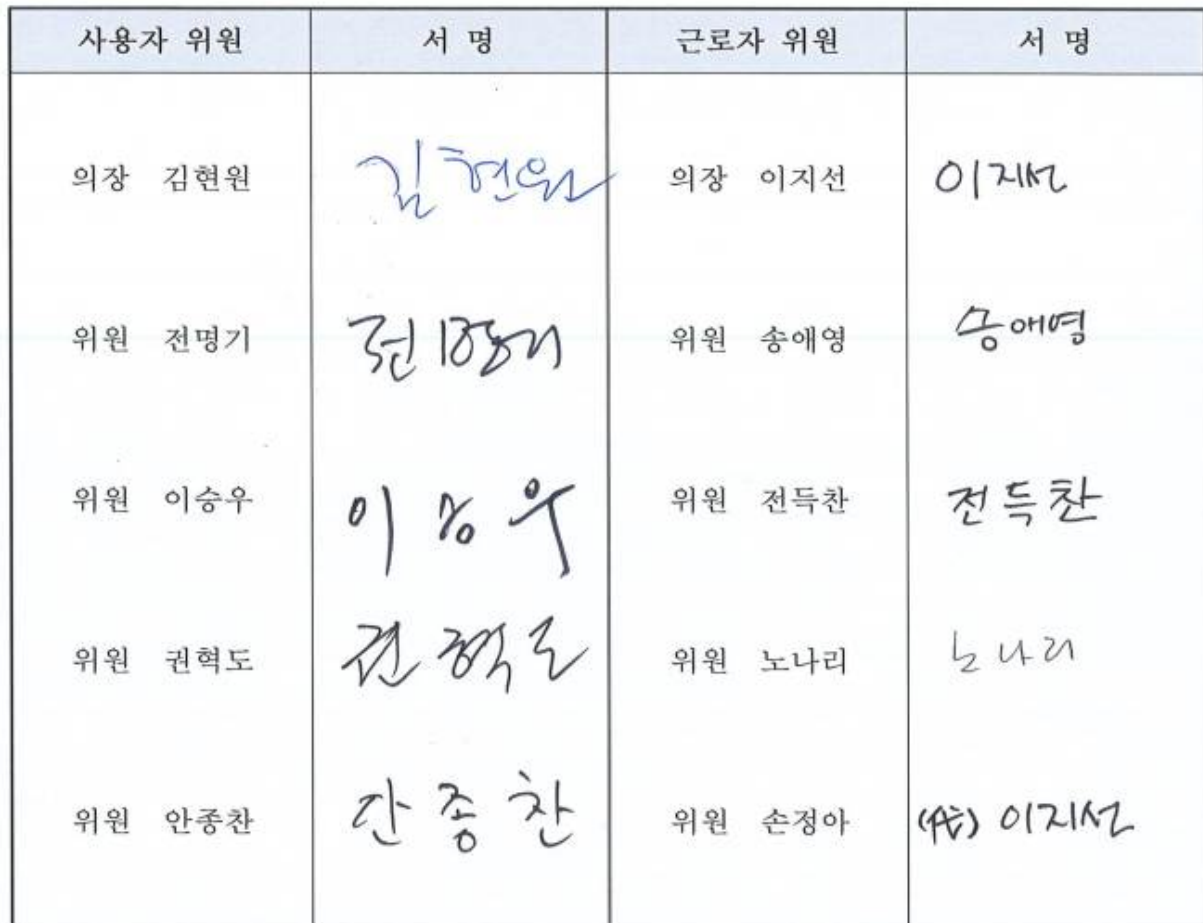 사용자 위원 서 명 근로자 위원 서 명
의장 김현원 김현원 의장 이지선 이지선
위원 전명기 전명기 위원 송애영 송애영
위원 이승우 이승우 위원 전득찬 전득찬
위원 권혁도 권혁도 위원 노나리 노나리
위원 안종찬 안종찬 위원 손정아 (代) 이지선